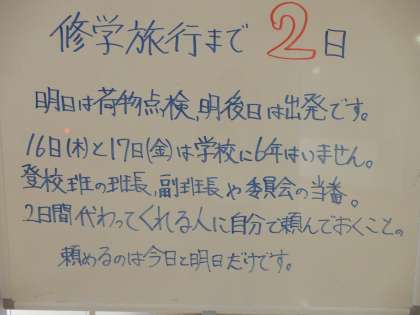 修学旅行まで2日
明日は荷物点検、明後日は出発です。
16日(木)と17日(金)は学校に6年はいません。
登校班の班長、副班長や委員会の当番。
2日間代わってくれる人に自分で頼んでおくこと。
頼めるのは今日と明日だけです。